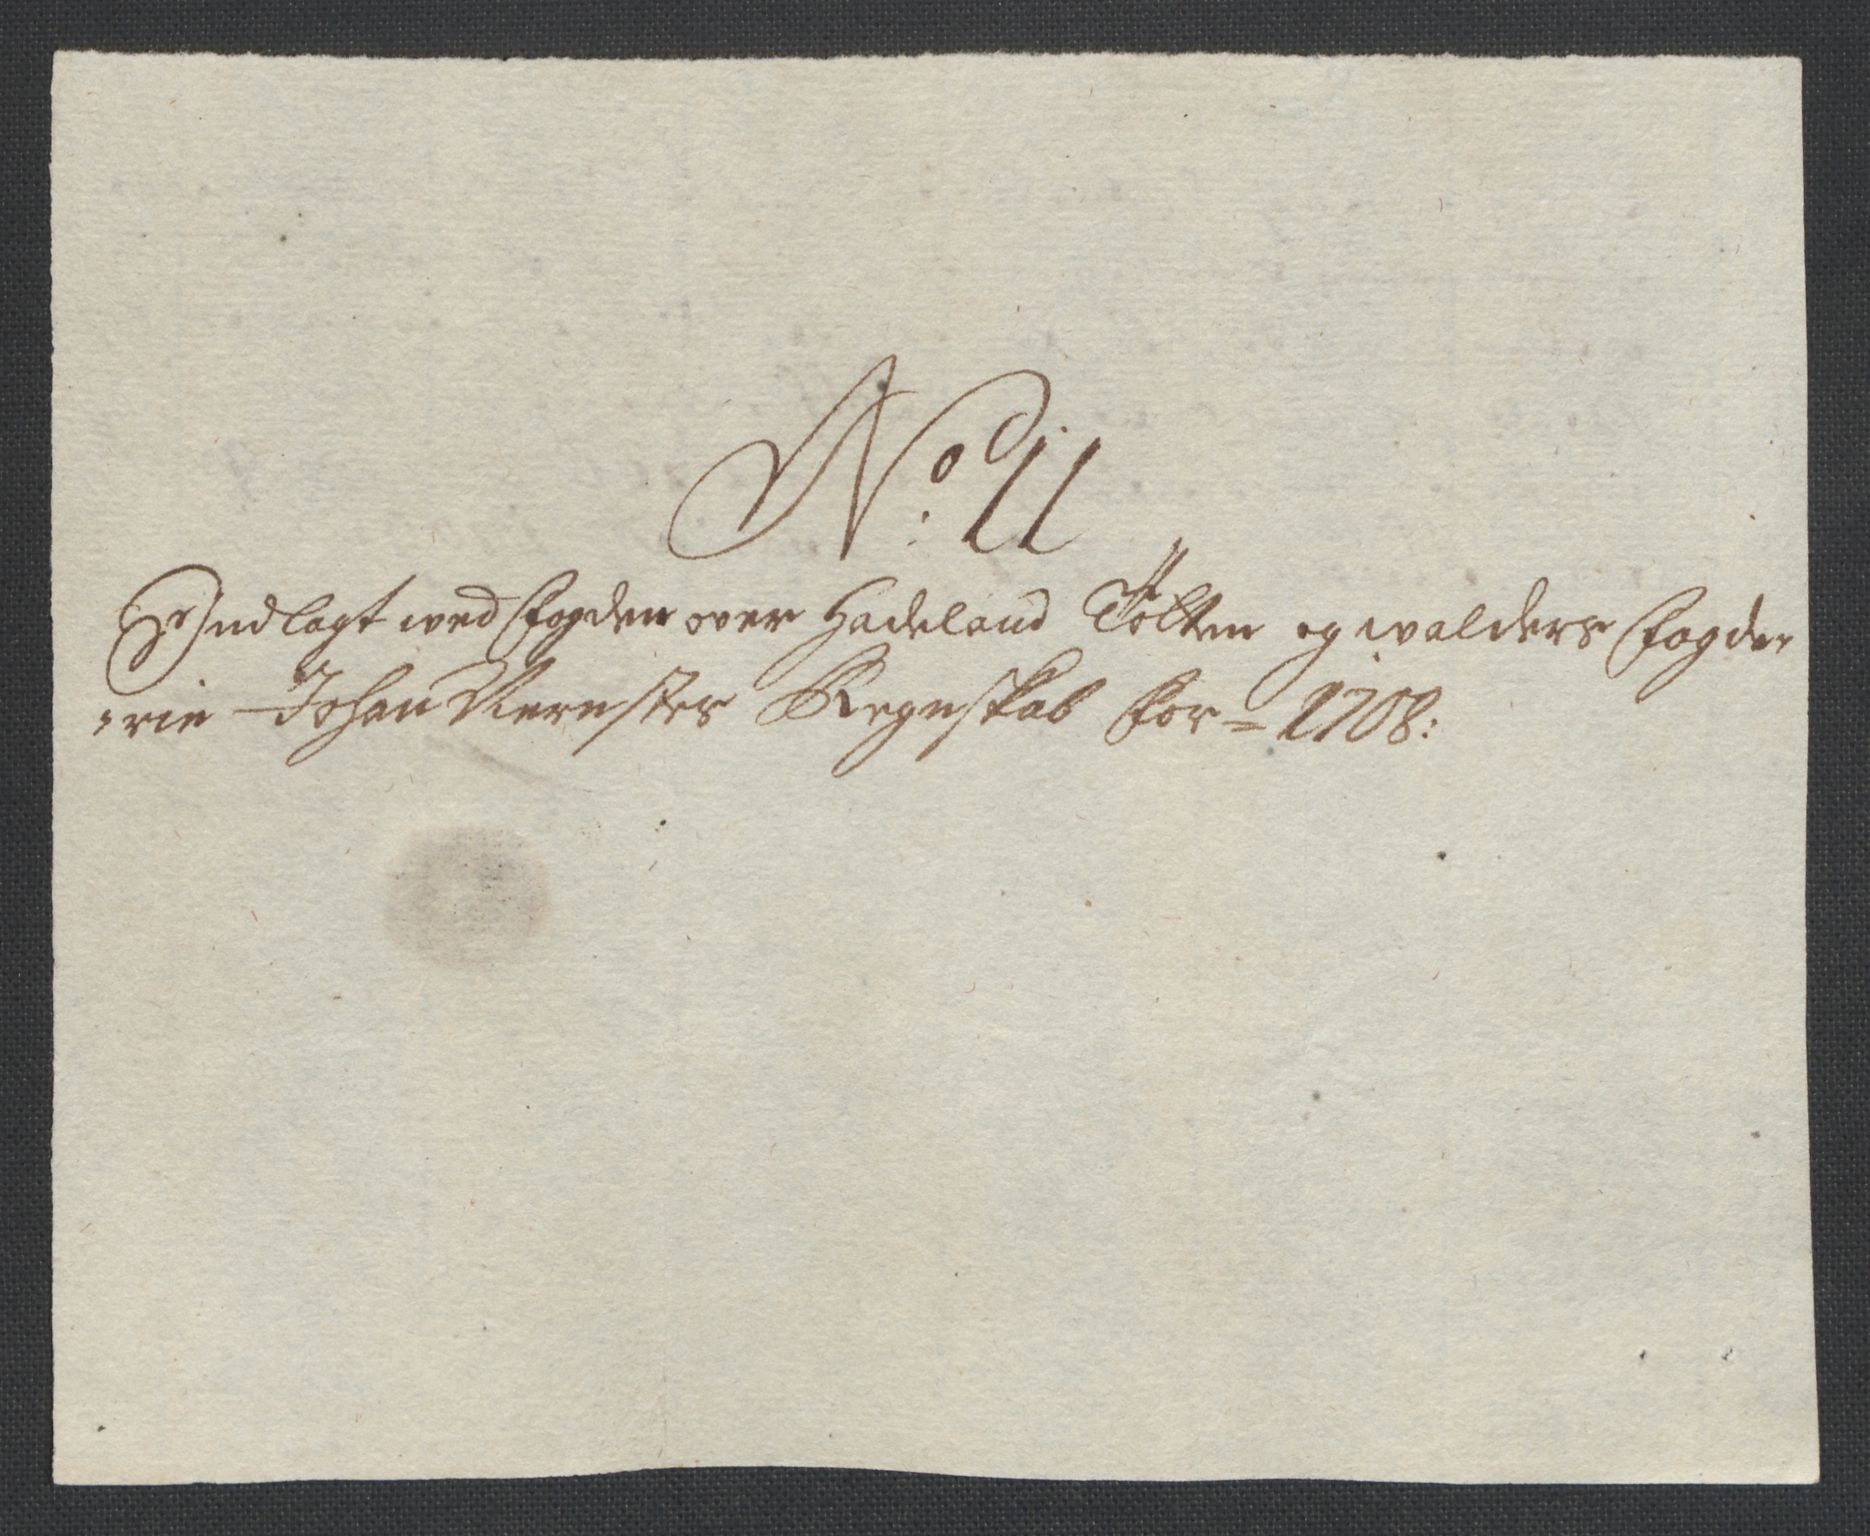 No: 11
Indlagt wed fogden over Hadeland Tótten og walders fogde„
„rie Johan Mernsters Regnskab for = 1708: